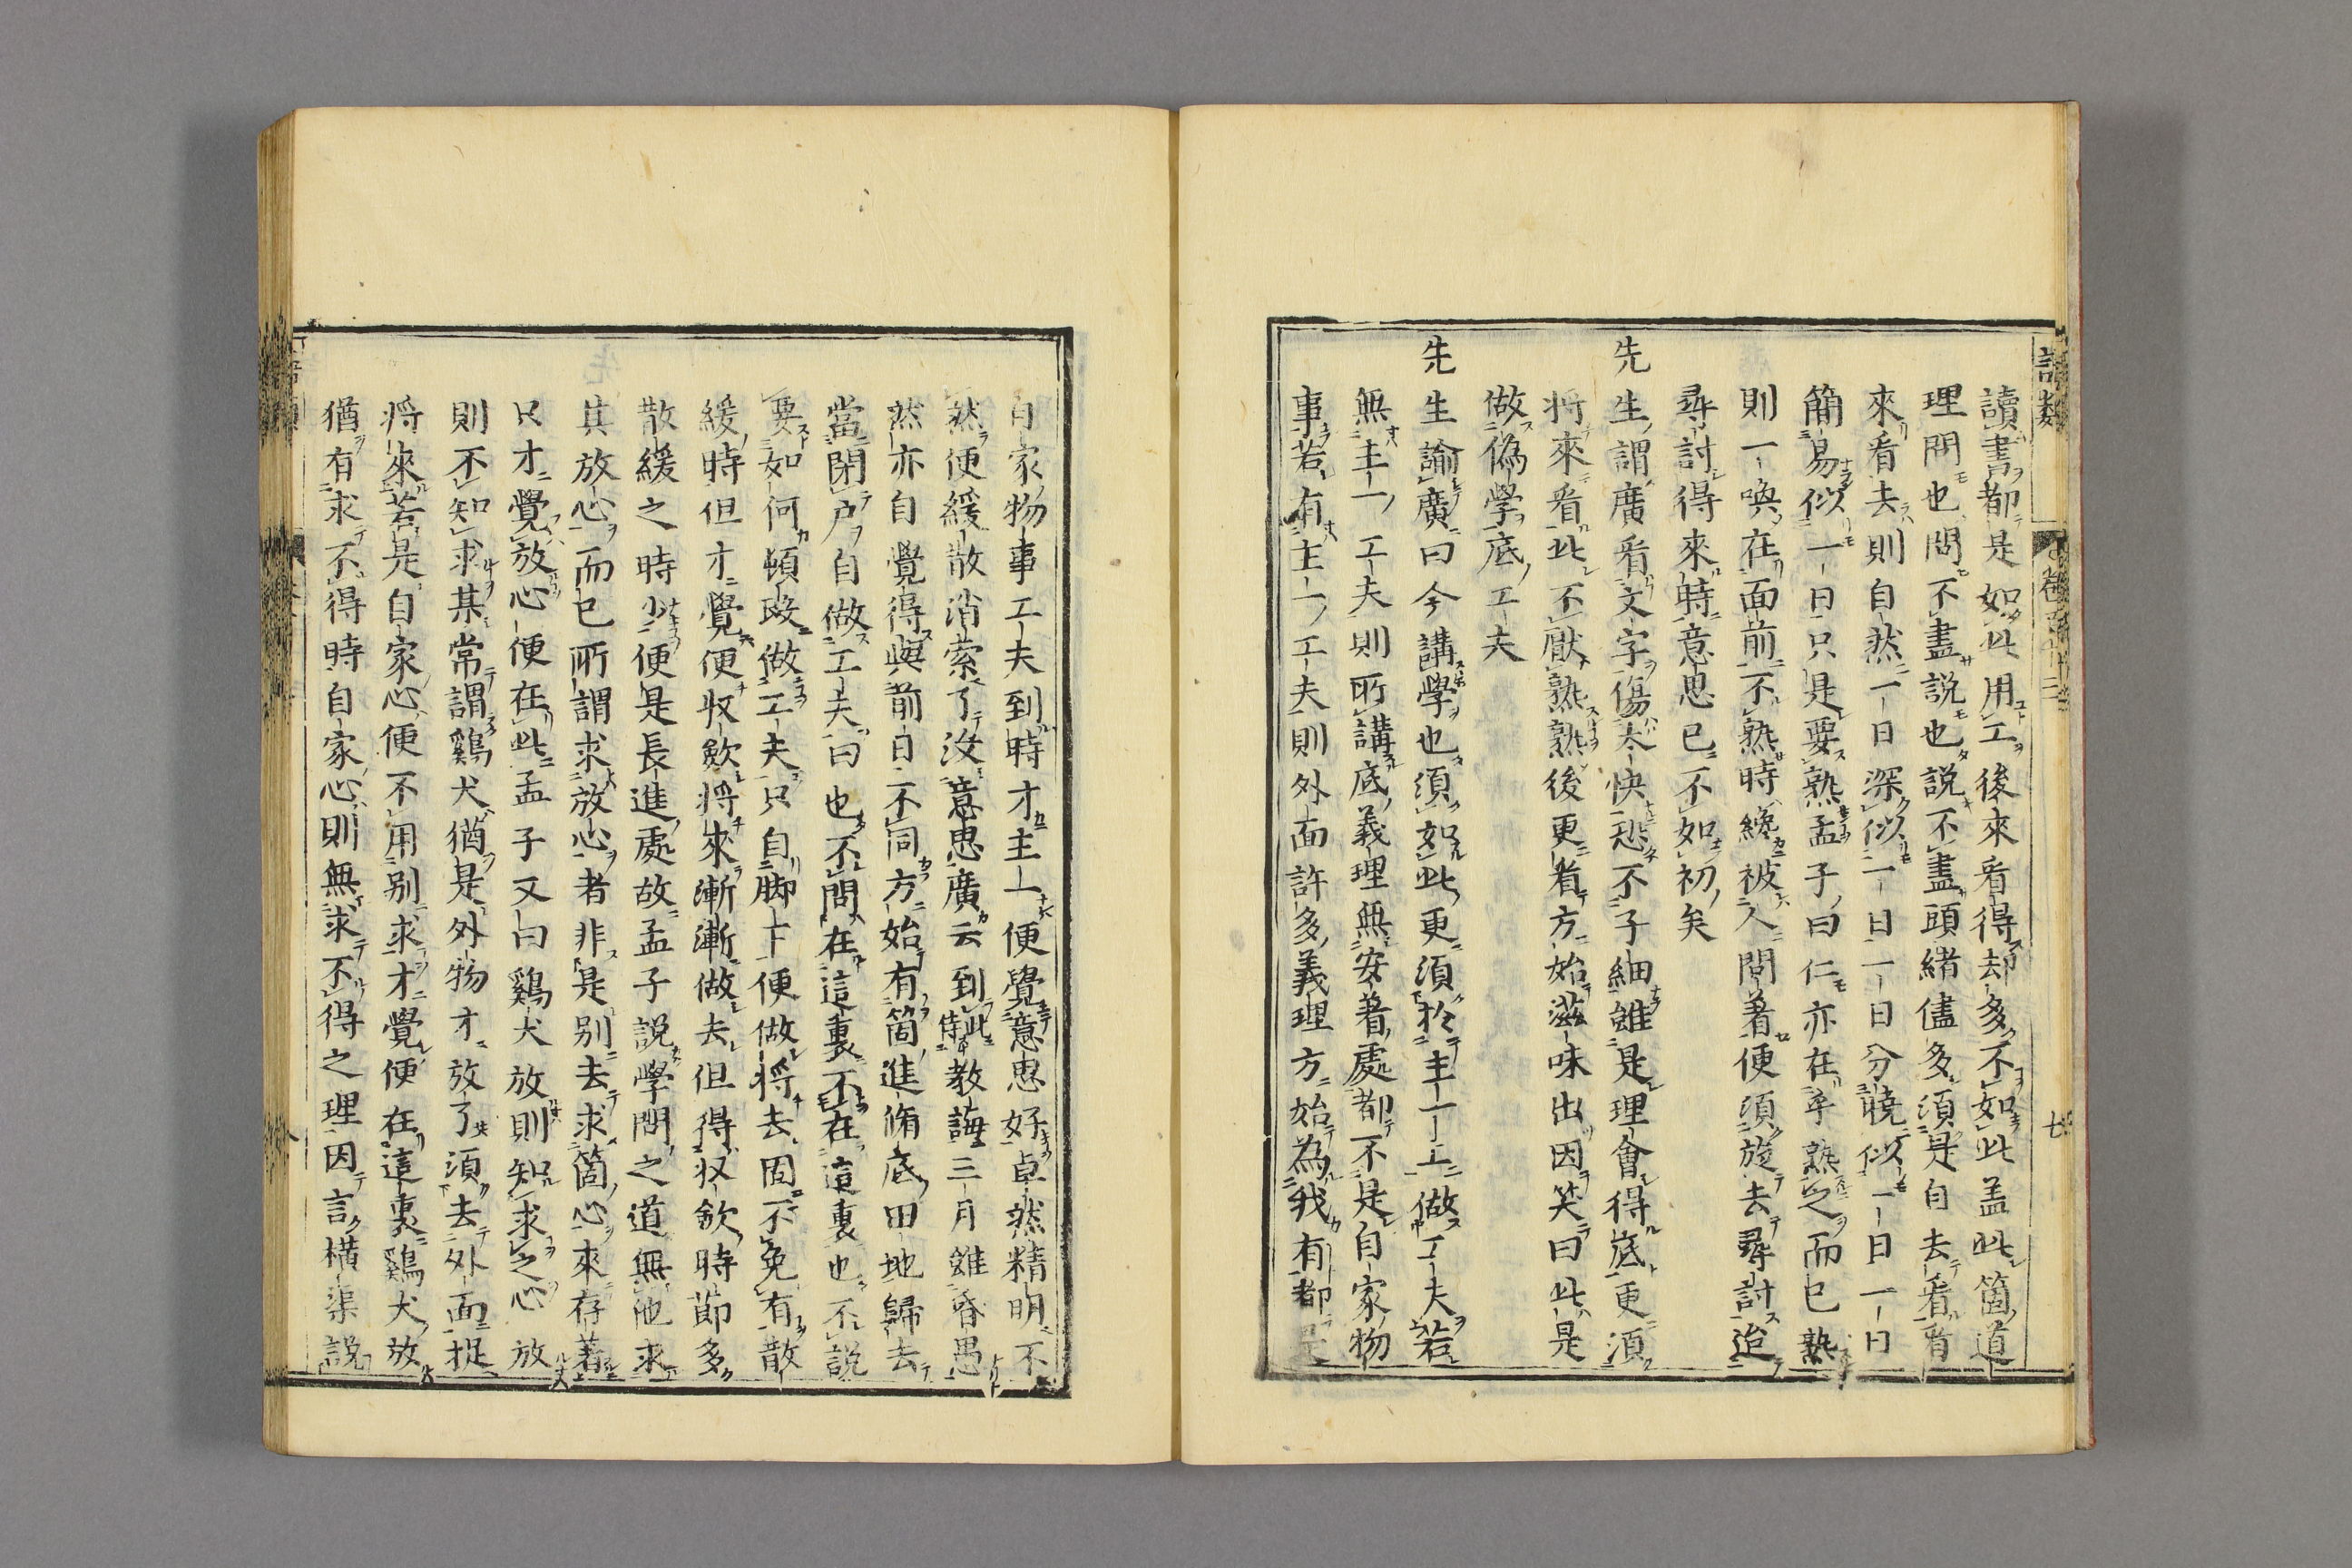 語類
卷百十三
七
讀書都是如此用工後來看得却多不如此盖此箇道
理問也問不盡説也説不盡頭緒儘多須是自去看看
來看去則自然一日深似一日一日分曉似一日一日
簡易似一日只是要熟孟子曰仁亦在乎熟之而已熟
則一喚在面前不熟時纔被人問著便須旋去尋討迨
尋討得來時意思已不如初矣
先生謂廣看文字傷太快恐不子細雖是理會得底更須
將來看此不厭熟熟後更看方始滋味出因笑曰此是
做偽學底工夫
先生諭廣曰今講學也須如此更須於主一上做工夫若
無主一工夫則所講底義理無安著處都不是自家物
事若有主一工夫則外面許多義理方始為我有都是
自家物事工夫到時才主一便覺意思好卓然精明不
然便緩散消索了沒意思廣云到此侍教誨三月雖昏愚
然亦自覺得與前日不同方始有箇進脩底田地歸去
當閉户自做工夫曰也不問在這裏不在這裏也不説
要如何頓段做工夫只自脚下便做將去固不免有散
緩時但才覺便収斂將來漸漸做去但得収斂時節多
散緩之時少便是長進處故孟子説學問之道無他求
其放心而已所謂求放心者非是别去求箇心來存著
只才覺放心便在此孟子又曰鷄犬放則知求之心放
則不知求某常謂鷄犬猶是外物才放了須去外面捉
將來若是自家心便不用别求才覺便在這裏鷄犬放
猶有求不得時自家心則無求不得之理因言横渠説